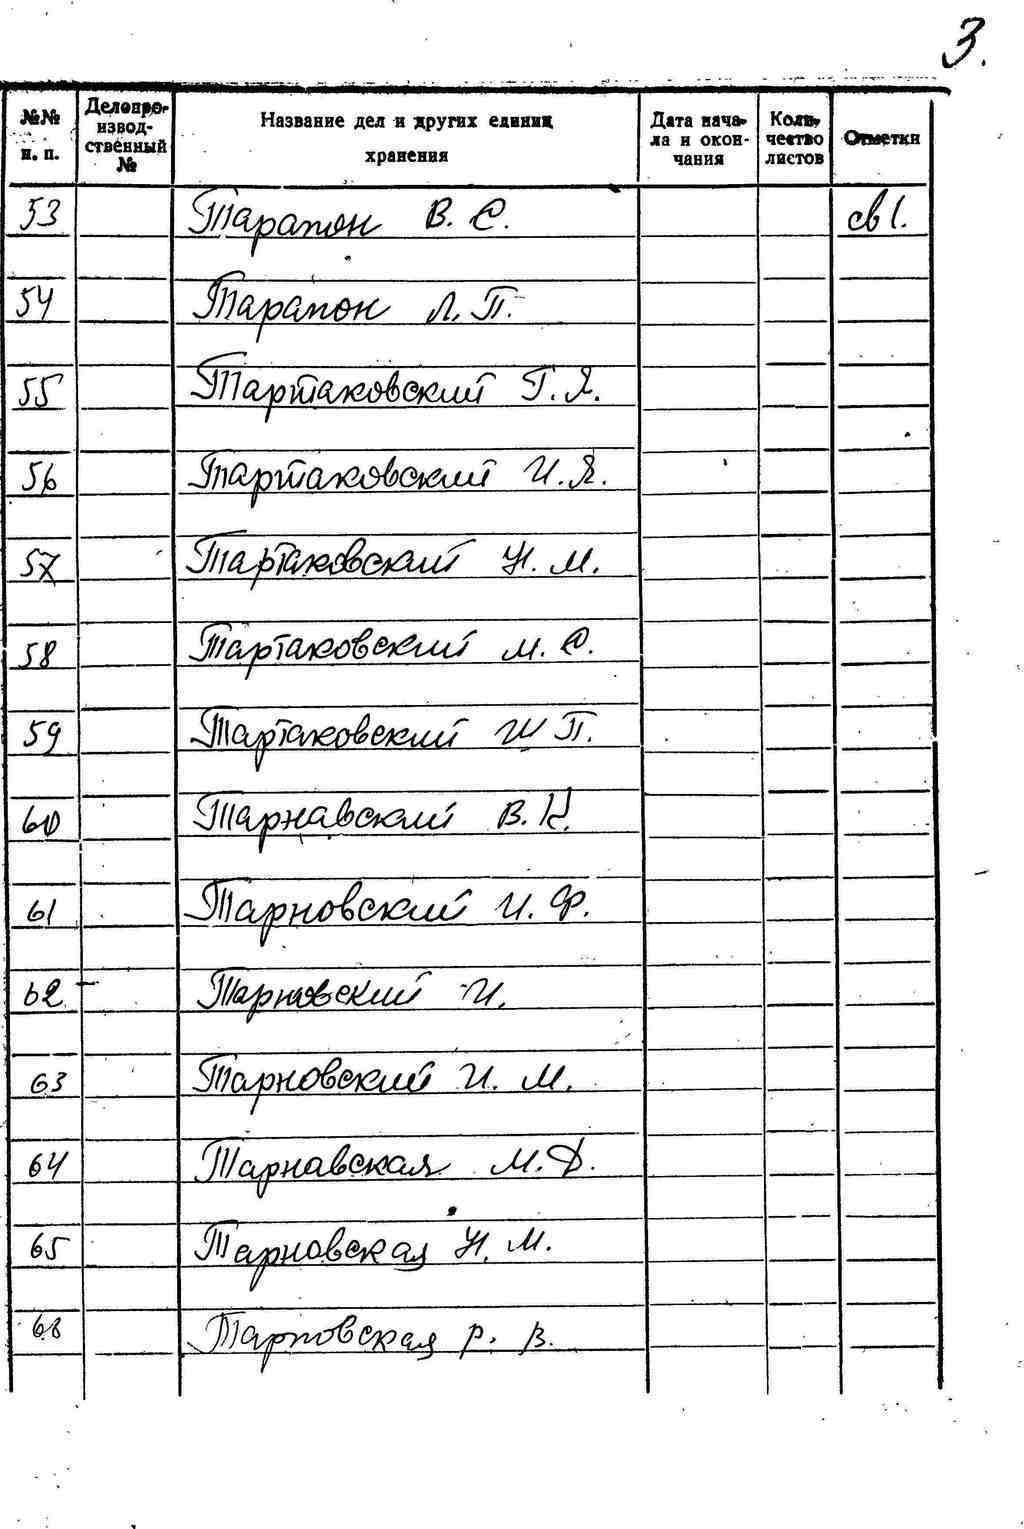 3.
№№ п. п. Делопроизводственный № Название дел и других единиц хранения Дата начала и окончания Количество листов Отметки
53 Тарапон В. С. св 1.
54 Тарапон Л. П.
55 Тартаковский Г. Я.
56 Тартаковский И. Я.
57 Тартаковский Н. М.
58 Тартаковский М. О.
59 Тартаковский Ш П.
60 Тарнавский В. К.
61 Тарновский И. Ф.
62 Тарновский И.
63 Тарновский И. М.
64 Тарнавская М. Д.
65 Тарновская Н. М.
66 Тарновская Р. В.